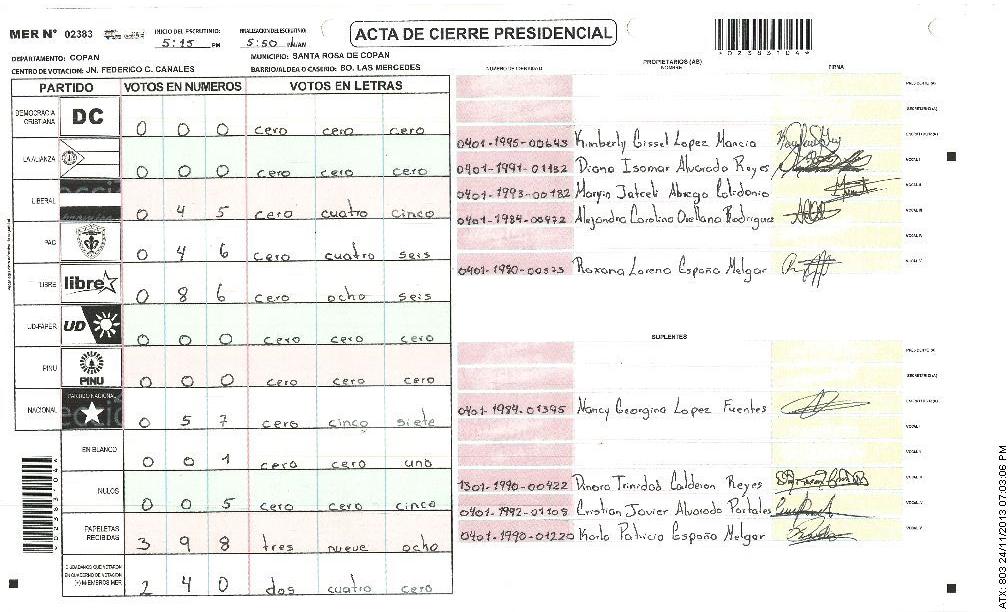 MER N° 02383
INICIO DEL ESCRUTINIO: 5:15 PM
FINALIZACION DEL ESCRUTINIO: 5:50
ACTA DE CIERRE PRESIDENCIAL
DEPARTAMENTO: COPAN
MUNICIPIO: SANTA ROSA DE COPAN
CENTRO DE VOTACION: JN. FEDERICO C. CANALES
BARRIO/ALDEA O CASERIO: BO. LAS MERCEDES
PARTIDO VOTOS EN NUMEROS VOTOS EN LETRAS
DEMOCRACIA CRISTIANA DC 0 0 0 cero cero cero
LA ALIANZA 0 0 0 cero cero cero
LIBERAL 0 4 5 cero cuatro cinco
PAC 0 4 6 cero cuatro seis
LIBRE libre 0 8 6 cero ocho seis
UD-FAPER UD 0 0 0 cero cero cero
PINU PINU 0 0 0 cero cero cero
NACIONAL PARTIDO NACIONAL 0 5 7 cero cinco siete
EN BLANCO 0 0 1 cero cero uno
NULOS 0 0 5 cero cero cinco
PAPELETAS RECIBIDAS 3 9 8 tres nueve ocho
CIUDADANOS QUE VOTARON EN CUADERNO DE VOTACION (+) MIEMBROS MER 2 4 0 dos cuatro cero
NUMERO DE IDENTIDAD PROPIETARIOS (AS) NOMBRE FIRMA
PRESIDENTE (A)
SECRETARIO (A)
0401-1995-00643 Kimberly Gissel Lopez Mancia ESCRUTADOR(A)
0401-1991-01132 Diana Isomar Alvarado Reyes VOCAL I
0401-1993-00182 Maryin Jatceli Abrego Calidonio VOCAL II
0401-1984-00972 Alejandra Carolina Orellana Rodriguez VOCAL III
VOCAL IV
0401-1980-00573 Roxana Lorena España Melgar VOCAL V
SUPLENTES
PRESIDENTE (A)
SECRETARIO (A)
0401-1984-01395 Nancy Georgina Lopez Fuentes ESCRUTADOR(A)
VOCAL I
VOCAL II
1301-1990-00422 Dinora Trinidad Calderon Reyes VOCAL III
0401-1992-01108 Cristian Javier Alvarado Portales VOCAL IV
0401-1990-01220 Karla Patricia España Melgar VOCAL V
ATX: 803 24/11/2013 07:03:06 PM